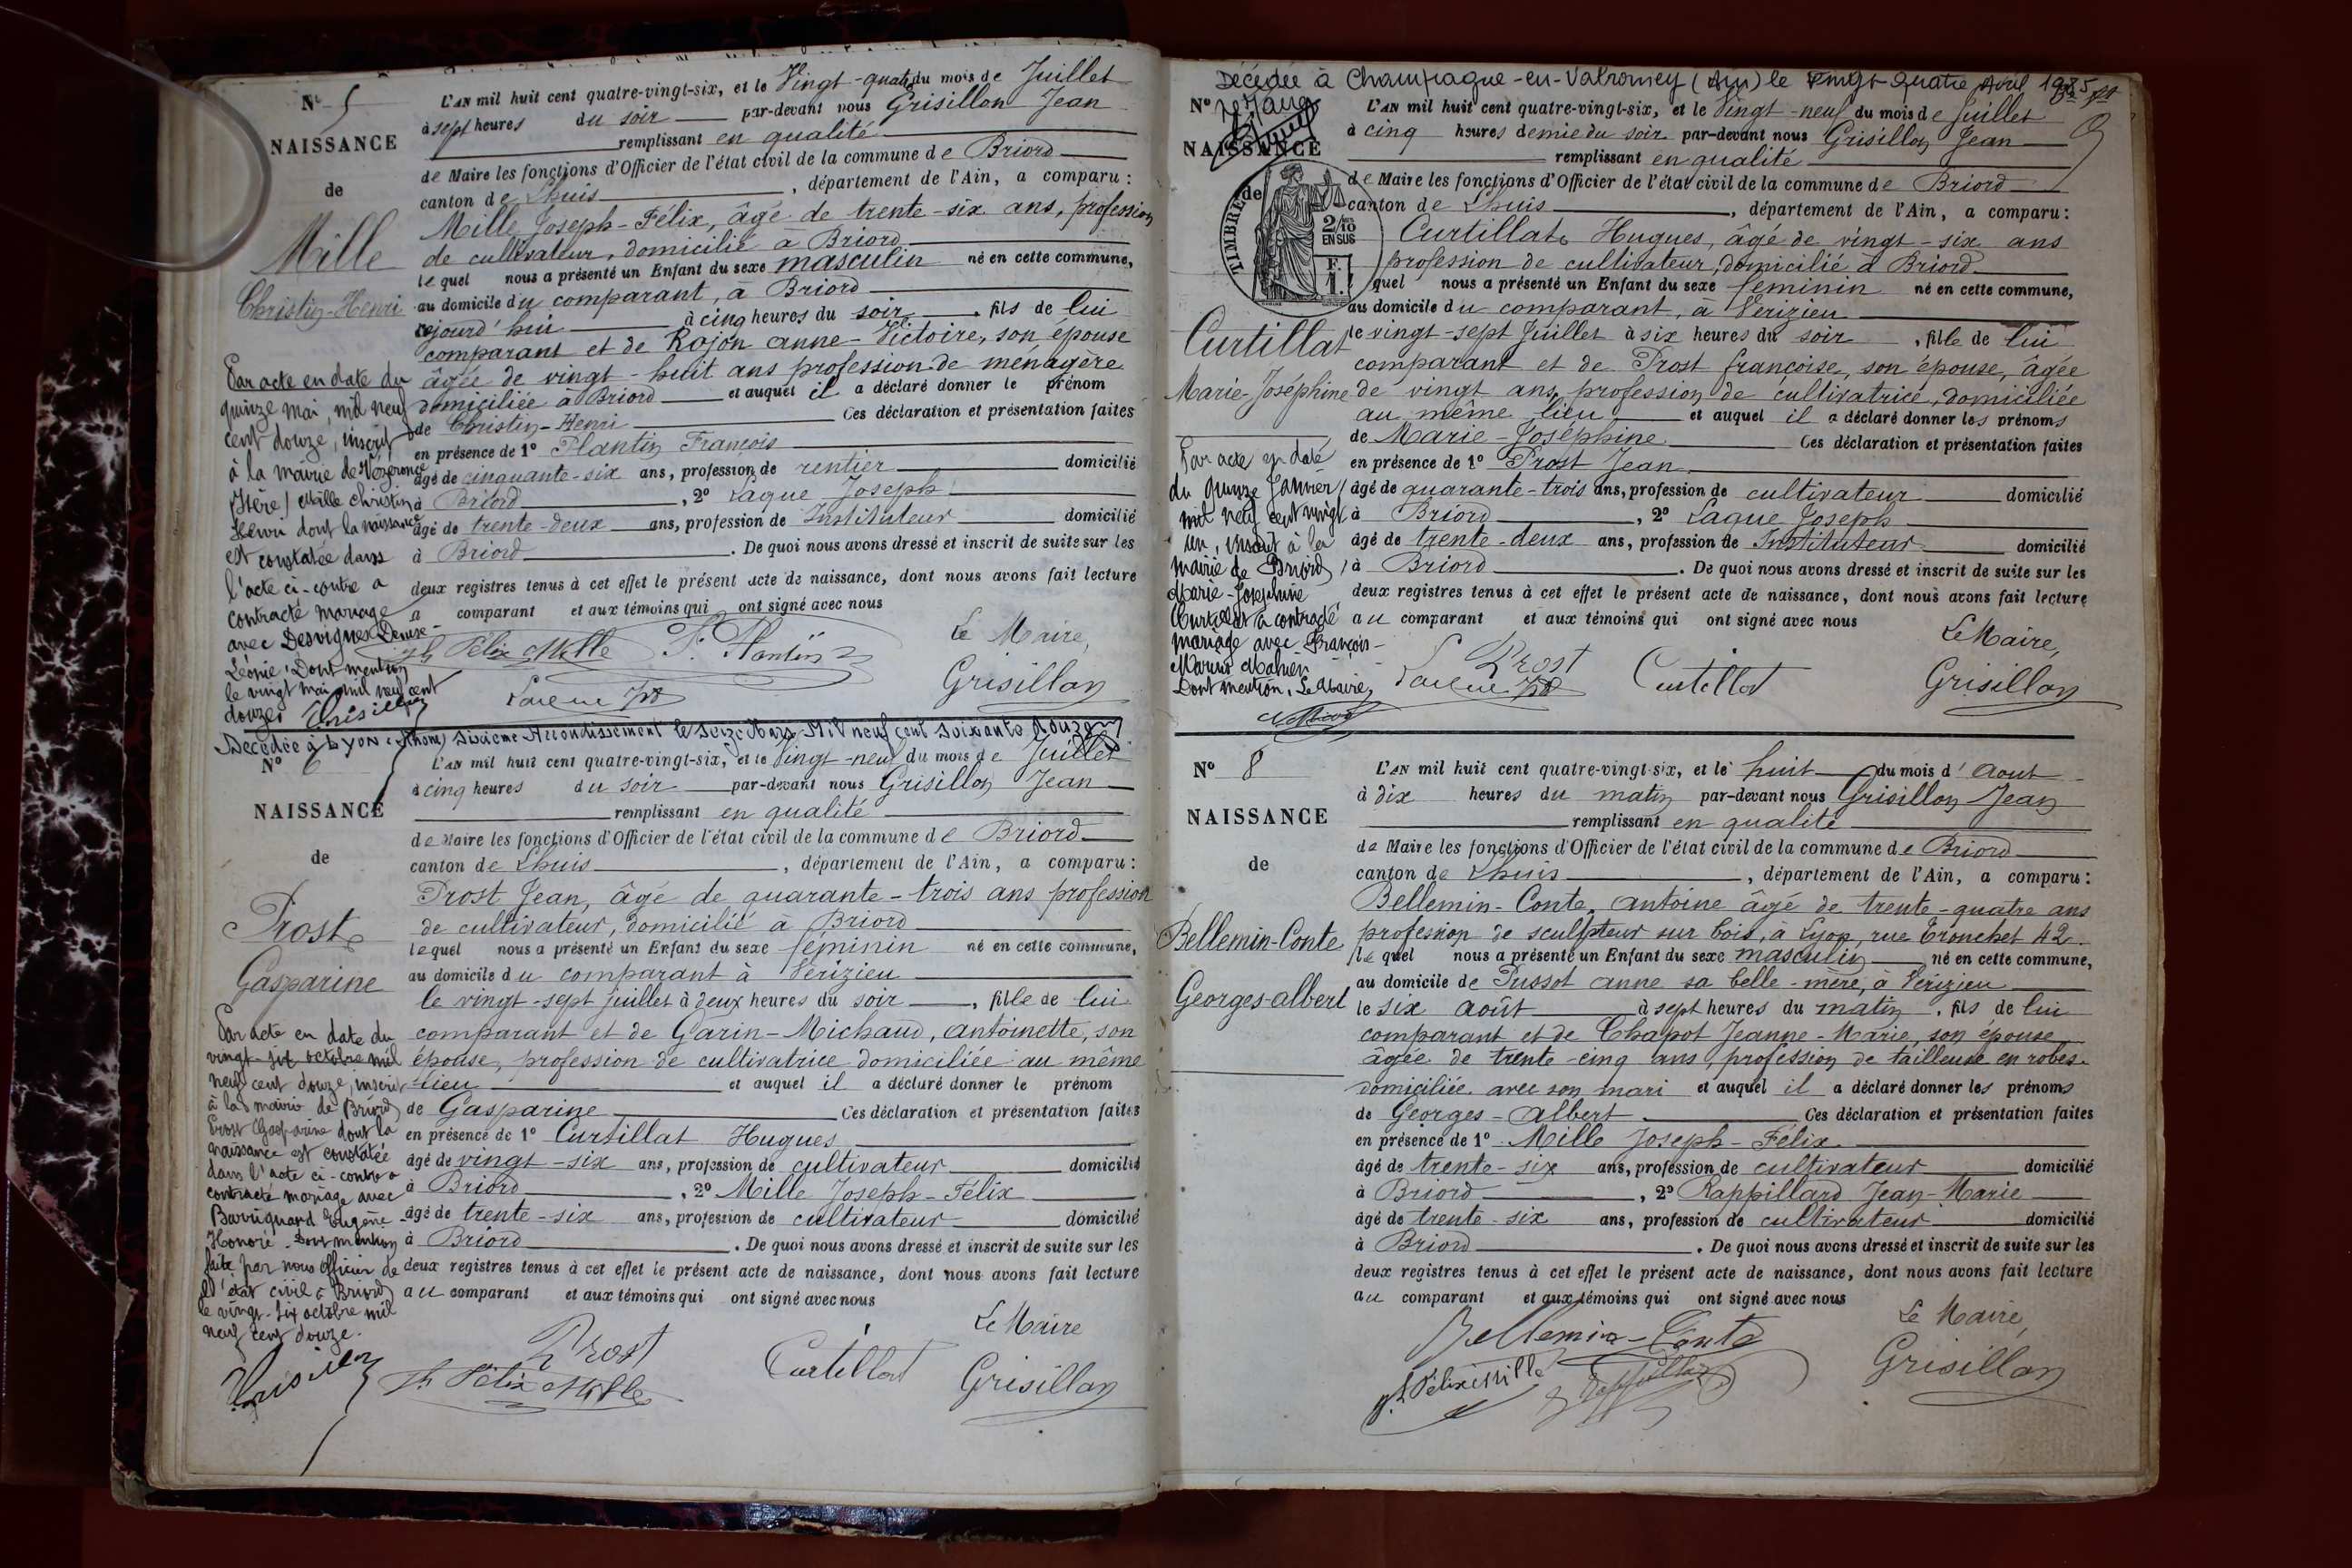 N° 5
NAISSANCE
de
Mille
Christin-Henri
Par acte en date du
quinze mai, mil neuf
cent douze, inscrit
à la mairie de Vézeronce
(Isère) Mille Christin
Henri dont la naissance
est constatée dans
l'acte ci-contre a
contracté mariage
avec Desvignes Denise-
Léonie. Dont mention
le vingt mai mil neuf cent
douze. Grisillon
L'AN mil huit cent quatre-vingt-six, et le Vingt-quatre du mois de Juillet
à sept heures du soir par-devant nous Grisillon Jean
remplissant en qualité
de Maire les fonctions d'Officier de l'état civil de la commune de Briord
canton de Lhuis, département de l'Ain, a comparu :
Mille Joseph-Félix, âgé de trente-six ans, profession
de cultivateur, domicilié à Briord
lequel nous a présenté un Enfant du sexe masculin né en cette commune,
au domicile du comparant, à Briord
cejourd'hui à cinq heures du soir, fils de lui
comparant et de Rojon Anne-Victoire, son épouse
âgée de vingt-huit ans profession de ménagère
domiciliée à Briord et auquel il a déclaré donner le prénom
de Christin-Henri Ces déclaration et présentation faites
en présence de 1° Plantin François
âgé de cinquante-six ans, profession de rentier domicilié
à Briord, 2° Laque Joseph
âgé de trente-deux ans, profession de Instituteur domicilié
à Briord. De quoi nous avons dressé et inscrit de suite sur les
deux registres tenus à cet effet le présent acte de naissance, dont nous avons fait lecture
a comparant et aux témoins qui ont signé avec nous
Le Maire,
Félix Mille F. Plantin Grisillon
Laque Jph
Décédée à Lyon (Rhône) sixième Arrondissement le seize Mars Mil neuf cent soixante douze
N° 6
NAISSANCE
de
Prost
Gasparine
Par acte en date du
vingt-six octobre mil
neuf cent douze, inscrit
à la mairie de Briord
Prost Gasparine dont la
naissance est constatée
dans l'acte ci-contre a
contracté mariage avec
Barruquand Eugène
Honoré. Dont mention
faite par nous officier de
l'état civil à Briord
le vingt-six octobre mil
neuf cent douze.
Grisillon
L'AN mil huit cent quatre-vingt-six, et le Vingt-neuf du mois de Juillet
à cinq heures du soir par-devant nous Grisillon Jean
remplissant en qualité
de Maire les fonctions d'Officier de l'état civil de la commune de Briord
canton de Lhuis, département de l'Ain, a comparu :
Prost Jean, âgé de quarante-trois ans profession
de cultivateur, domicilié à Briord
lequel nous a présenté un Enfant du sexe féminin né en cette commune,
au domicile du comparant à Vérizieu
le vingt-sept juillet à deux heures du soir, fille de lui
comparant et de Garin-Michaud, Antoinette, son
épouse, profession de cultivatrice domiciliée au même
lieu et auquel il a déclaré donner le prénom
de Gasparine Ces déclaration et présentation faites
en présence de 1° Curtillat Hugues
âgé de vingt-six ans, profession de cultivateur domicilié
à Briord, 2° Mille Joseph-Félix
âgé de trente-six ans, profession de cultivateur domicilié
à Briord. De quoi nous avons dressé et inscrit de suite sur les
deux registres tenus à cet effet le présent acte de naissance, dont nous avons fait lecture
au comparant et aux témoins qui ont signé avec nous
Le Maire
Prost Curtillat Grisillon
Félix Mille
Décédée à Champagne-en-Valromey (Ain) le vingt-quatre Avril 1985
N° 7
NAISSANCE
de
TIMBRE
2/10
EN SUS
F.
1.
Curtillat
Marie-Joséphine
Par acte en date
du quinze Janvier
mil neuf cent vingt
un, inscrit à la
mairie de Briord,
Marie-Joséphine
Curtillat a contracté
mariage avec François-
Marius
Dont mention, Le Maire,
L'AN mil huit cent quatre-vingt-six, et le Vingt-neuf du mois de Juillet
à cinq heures demie du soir par-devant nous Grisillon Jean
remplissant en qualité
de Maire les fonctions d'Officier de l'état civil de la commune de Briord
canton de Lhuis, département de l'Ain, a comparu :
Curtillat Hugues, âgé de vingt-six ans
profession de cultivateur, domicilié à Briord
quel nous a présenté un Enfant du sexe féminin né en cette commune,
au domicile du comparant, à Vérizieu
le vingt-sept Juillet à six heures du soir, fille de lui
comparant et de Prost françoise, son épouse, âgée
de vingt ans, profession de cultivatrice, domiciliée
au même lieu et auquel il a déclaré donner les prénoms
de Marie-Joséphine Ces déclaration et présentation faites
en présence de 1° Prost Jean
âgé de quarante-trois ans, profession de cultivateur domicilié
à Briord, 2° Laque Joseph
âgé de trente-deux ans, profession de Instituteur domicilié
à Briord. De quoi nous avons dressé et inscrit de suite sur les
deux registres tenus à cet effet le présent acte de naissance, dont nous avons fait lecture
au comparant et aux témoins qui ont signé avec nous
Le Maire,
Prost Curtillat Grisillon
Laque Jph
N° 8
NAISSANCE
de
Bellemin-Conte
Georges-Albert
L'AN mil huit cent quatre-vingt-six, et le huit du mois d'Aout
à dix heures du matin par-devant nous Grisillon Jean
remplissant en qualité
de Maire les fonctions d'Officier de l'état civil de la commune de Briord
canton de Lhuis, département de l'Ain, a comparu :
Bellemin-Conte, Antoine âgé de trente-quatre ans
profession de sculpteur sur bois, à Lyon, rue Tronchet 42.
lequel nous a présenté un Enfant du sexe masculin né en cette commune,
au domicile de Pussot Anne sa belle-mère, à Vérizieu
le six août à sept heures du matin, fils de lui
comparant et de Chapot Jeanne-Marie, son épouse
âgée de trente-cinq ans, profession de tailleuse en robes.
domiciliée avec son mari et auquel il a déclaré donner les prénoms
de Georges-Albert. Ces déclaration et présentation faites
en présence de 1° Mille Joseph-Félix
âgé de trente-six ans, profession de cultivateur domicilié
à Briord, 2° Rappillard Jean-Marie
âgé de trente-six ans, profession de cultivateur domicilié
à Briord. De quoi nous avons dressé et inscrit de suite sur les
deux registres tenus à cet effet le présent acte de naissance, dont nous avons fait lecture
au comparant et aux témoins qui ont signé avec nous
Le Maire,
Bellemin-Conte Grisillon
Félix Mille Rappillard